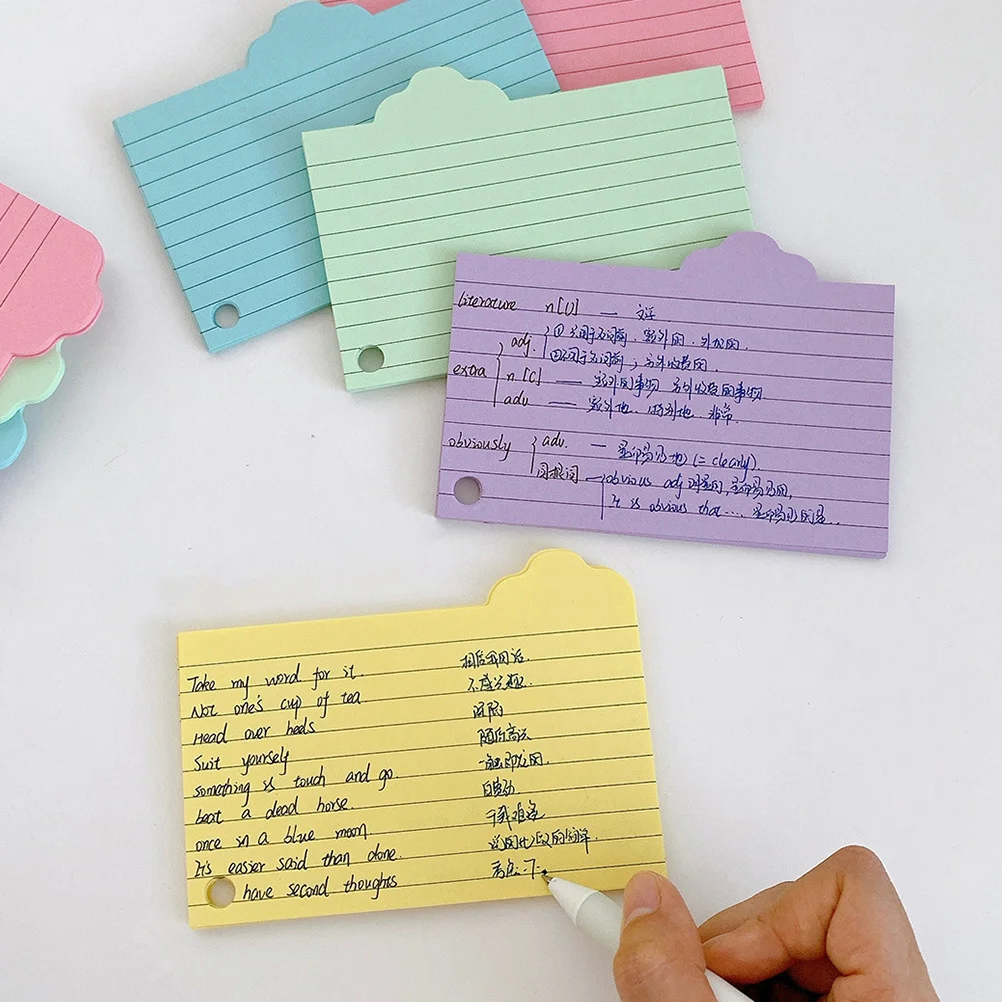 literature n[U] — 文学
adj. ①只用于名词前，额外的，外加的．
②不用于名词前；另外收费的
extra n[C] — 额外的事物 另外收费的事物
adv — 额外地、特别地 非常
obviously adv. — 显而易见地 (= clearly).
同根词 obvious adj 明显的，显而易见的，
It is obvious that .... 显而易见的是..
Take my word for it. 相信我的话．
Not one's cup of tea 不感兴趣．
Head over heels
Suit yourself 随你高兴
something is touch and go 一触即发的．
beat a dead horse. 白费劲．
once in a blue moon 千载难逢
It's easier said than done.
have second thoughts